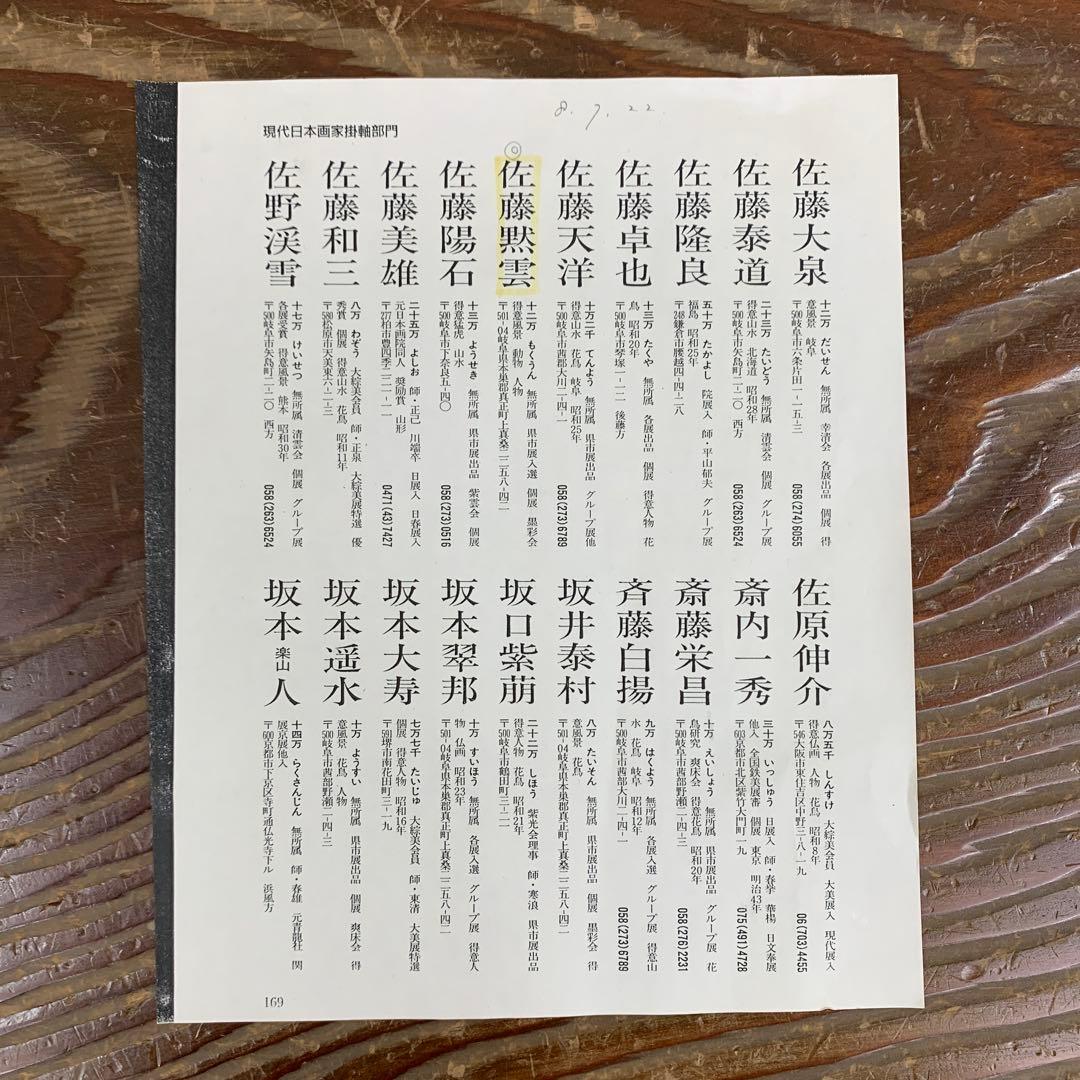 8.7.22
現代日本画家掛軸部門
佐藤大泉
十二万 だいせん 無所属 幸清会 各展出品 個展 得
意風景 岐阜
〒500岐阜市六条片田一-一五-三
058(274)6055
佐藤泰道
二十三万 たいどう 無所属 清雲会 個展 グループ展
得意山水 北海道 昭和28年
〒500岐阜市矢島町二-二〇 西方
058(263)6524
佐藤隆良
五十万 たかよし 院展入 師・平山郁夫 グループ展
福島 昭和25年
〒248鎌倉市腰越四-四-二八
佐藤卓也
十三万 たくや 無所属 各展出品 個展 得意人物 花
鳥 昭和20年
〒500岐阜市琴塚一-一一 後藤方
佐藤天洋
十万二千 てんよう 無所属 県市展出品 グループ展他
得意山水 花鳥 岐阜 昭和25年
〒500岐阜市茜部大川二-四-一
058(273)6789
佐藤黙雲
十二万 もくうん 無所属 県市展入選 個展 墨彩会
得意風景 動物 人物
〒501-04岐阜県本巣郡真正町上真桑二二五八-四二
佐藤陽石
十三万 ようせき 無所属 県市展出品 紫雲会 個展
得意猛虎 山水
〒500岐阜市下奈良五-四〇
058(273)0516
佐藤美雄
二十五万 よしお 師・正己 川端卒 日展入 日春展入
元日本画院同人 奨励賞 山形
〒277柏市豊四季二二一-一一
0471(43)7427
佐藤和三
八万 わぞう 大綜美会員 師・正泉 大綜美展特選 優
秀賞 個展 得意山水 花鳥 昭和11年
〒580松原市天美東六-二-三
佐野渓雪
十七万 けいせつ 無所属 清雲会 個展 グループ展
各展受賞 得意風景 熊本 昭和30年
〒500岐阜市矢島町二-二〇 西方
058(263)6524
佐原伸介
八万五千 しんすけ 大綜美会員 大美展入 現代展入
得意仏画 人物 花鳥 昭和8年
〒546大阪市東住吉区中野三-八-一九
06(703)4455
斎内一秀
三十万 いつしゅう 日展入 師・春挙 華楊 日文奉展
他入 全国鉄美展審 個展 東京 明治43年
〒603京都市北区紫竹大門町一九
075(491)4728
斎藤栄昌
十万 えいしょう 無所属 県市展出品 グループ展 花
鳥研究 爽床会 得意花鳥 昭和20年
〒500岐阜市茜部野瀬二-四-三
058(276)2231
斉藤白揚
九万 はくよう 無所属 各展入選 グループ展 得意山
水 花鳥 岐阜 昭和12年
〒500岐阜市茜部大川二-四-一
058(273)6789
坂井泰村
八万 たいそん 無所属 県市展出品 個展 墨彩会 得
意風景 花鳥
〒501-04岐阜県本巣郡真正町上真桑二二五八-四二
坂口紫萠
二十二万 しほう 紫光会理事 師・寒浪 県市展出品
得意人物 花鳥 昭和21年
〒500岐阜市鶴田町三-二一
坂本翠邦
十万 すいほう 無所属 各展入選 グループ展 得意人
物 仏画 昭和23年
〒501-04岐阜県本巣郡真正町上真桑二二五八-四二
坂本大寿
七万七千 たいじゅ 大綜美会員 師・東清 大美展特選
個展 得意人物 昭和16年
〒591堺市南花田町三-一九
坂本遥水
十万 ようすい 無所属 県市展出品 個展 爽床会 得
意風景 花鳥 人物
〒500岐阜市茜部野瀬二-四-三
坂本楽山人
十四万 らくさんじん 無所属 師・春雄 元青龍社 関
展京展他入
〒600京都市下京区寺町通仏光寺下ル 浜風方
169